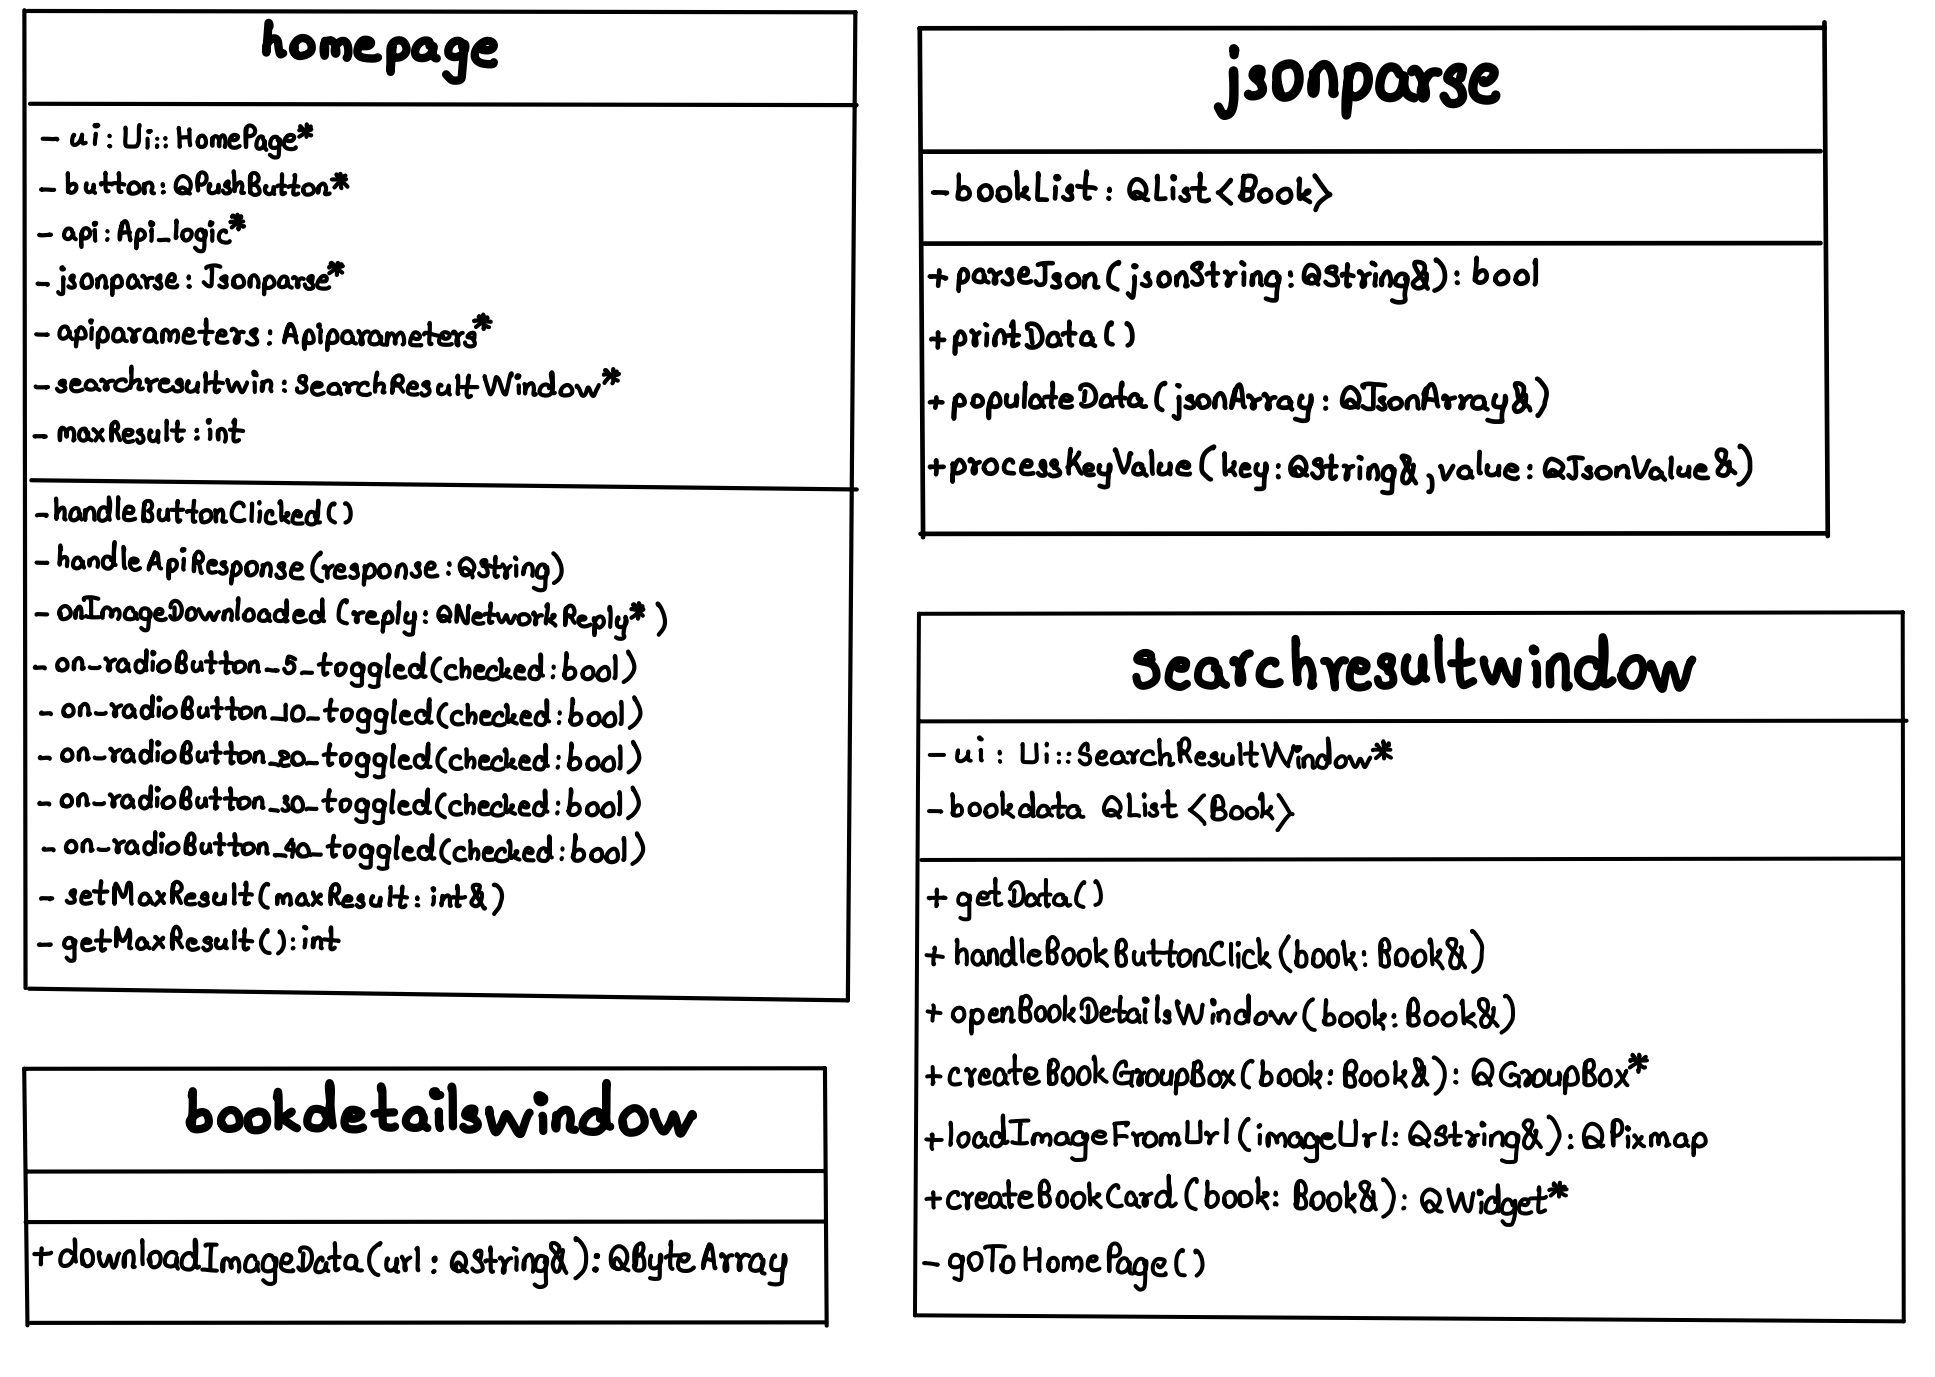 homepage
- ui: Ui:: HomePage*
- button: QPushButton*
- api: Api_logic*
- jsonparse: Jsonparse*
- apiparameters: Apiparameters*
- searchresultwin: SearchResultWindow*
- maxResult: int
- handleButtonClicked()
- handleApiResponse(response: QString)
- onImageDownloaded (reply: QNetworkReply* )
- on_radioButton_5_toggled(checked: bool)
- on_radioButton_10_toggled(checked: bool)
- on_radioButton_20_toggled(checked: bool)
- on_radioButton_30_toggled(checked: bool)
- on_radioButton_40_toggled(checked: bool)
- setMaxResult(maxResult: int&)
- getMaxResult(): int
jsonparse
- bookList: QList<Book>
+ parseJson(jsonString: QString&): bool
+ printData()
+ populateData(jsonArray: QJsonArray&)
+ processKeyValue(key: QString&, value: QJsonValue&)
searchresultwindow
- ui: Ui::SearchResultWindow*
- bookdata QList <Book>
+ getData()
+ handleBookButtonClick(book: Book&)
+ openBookDetailsWindow(book: Book&)
+ createBookGroupBox(book: Book&): QGroupBox*
+ loadImageFromUrl(imageUrl: QString&): QPixmap
+ createBookCard(book: Book&): QWidget*
- goToHomePage()
bookdetailswindow
+ downloadImageData(url: QString&): QByteArray